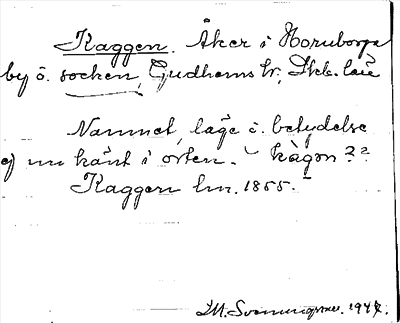 Kaggen. Åker i Hornborga
by o. socken, Gudhems hr, Skb. län
Namnet, läge o. betydelse
ej nu känt i orten. kågɔn ??
Kaggen lm. 1855.
D.M. Svenungsson. 1947.